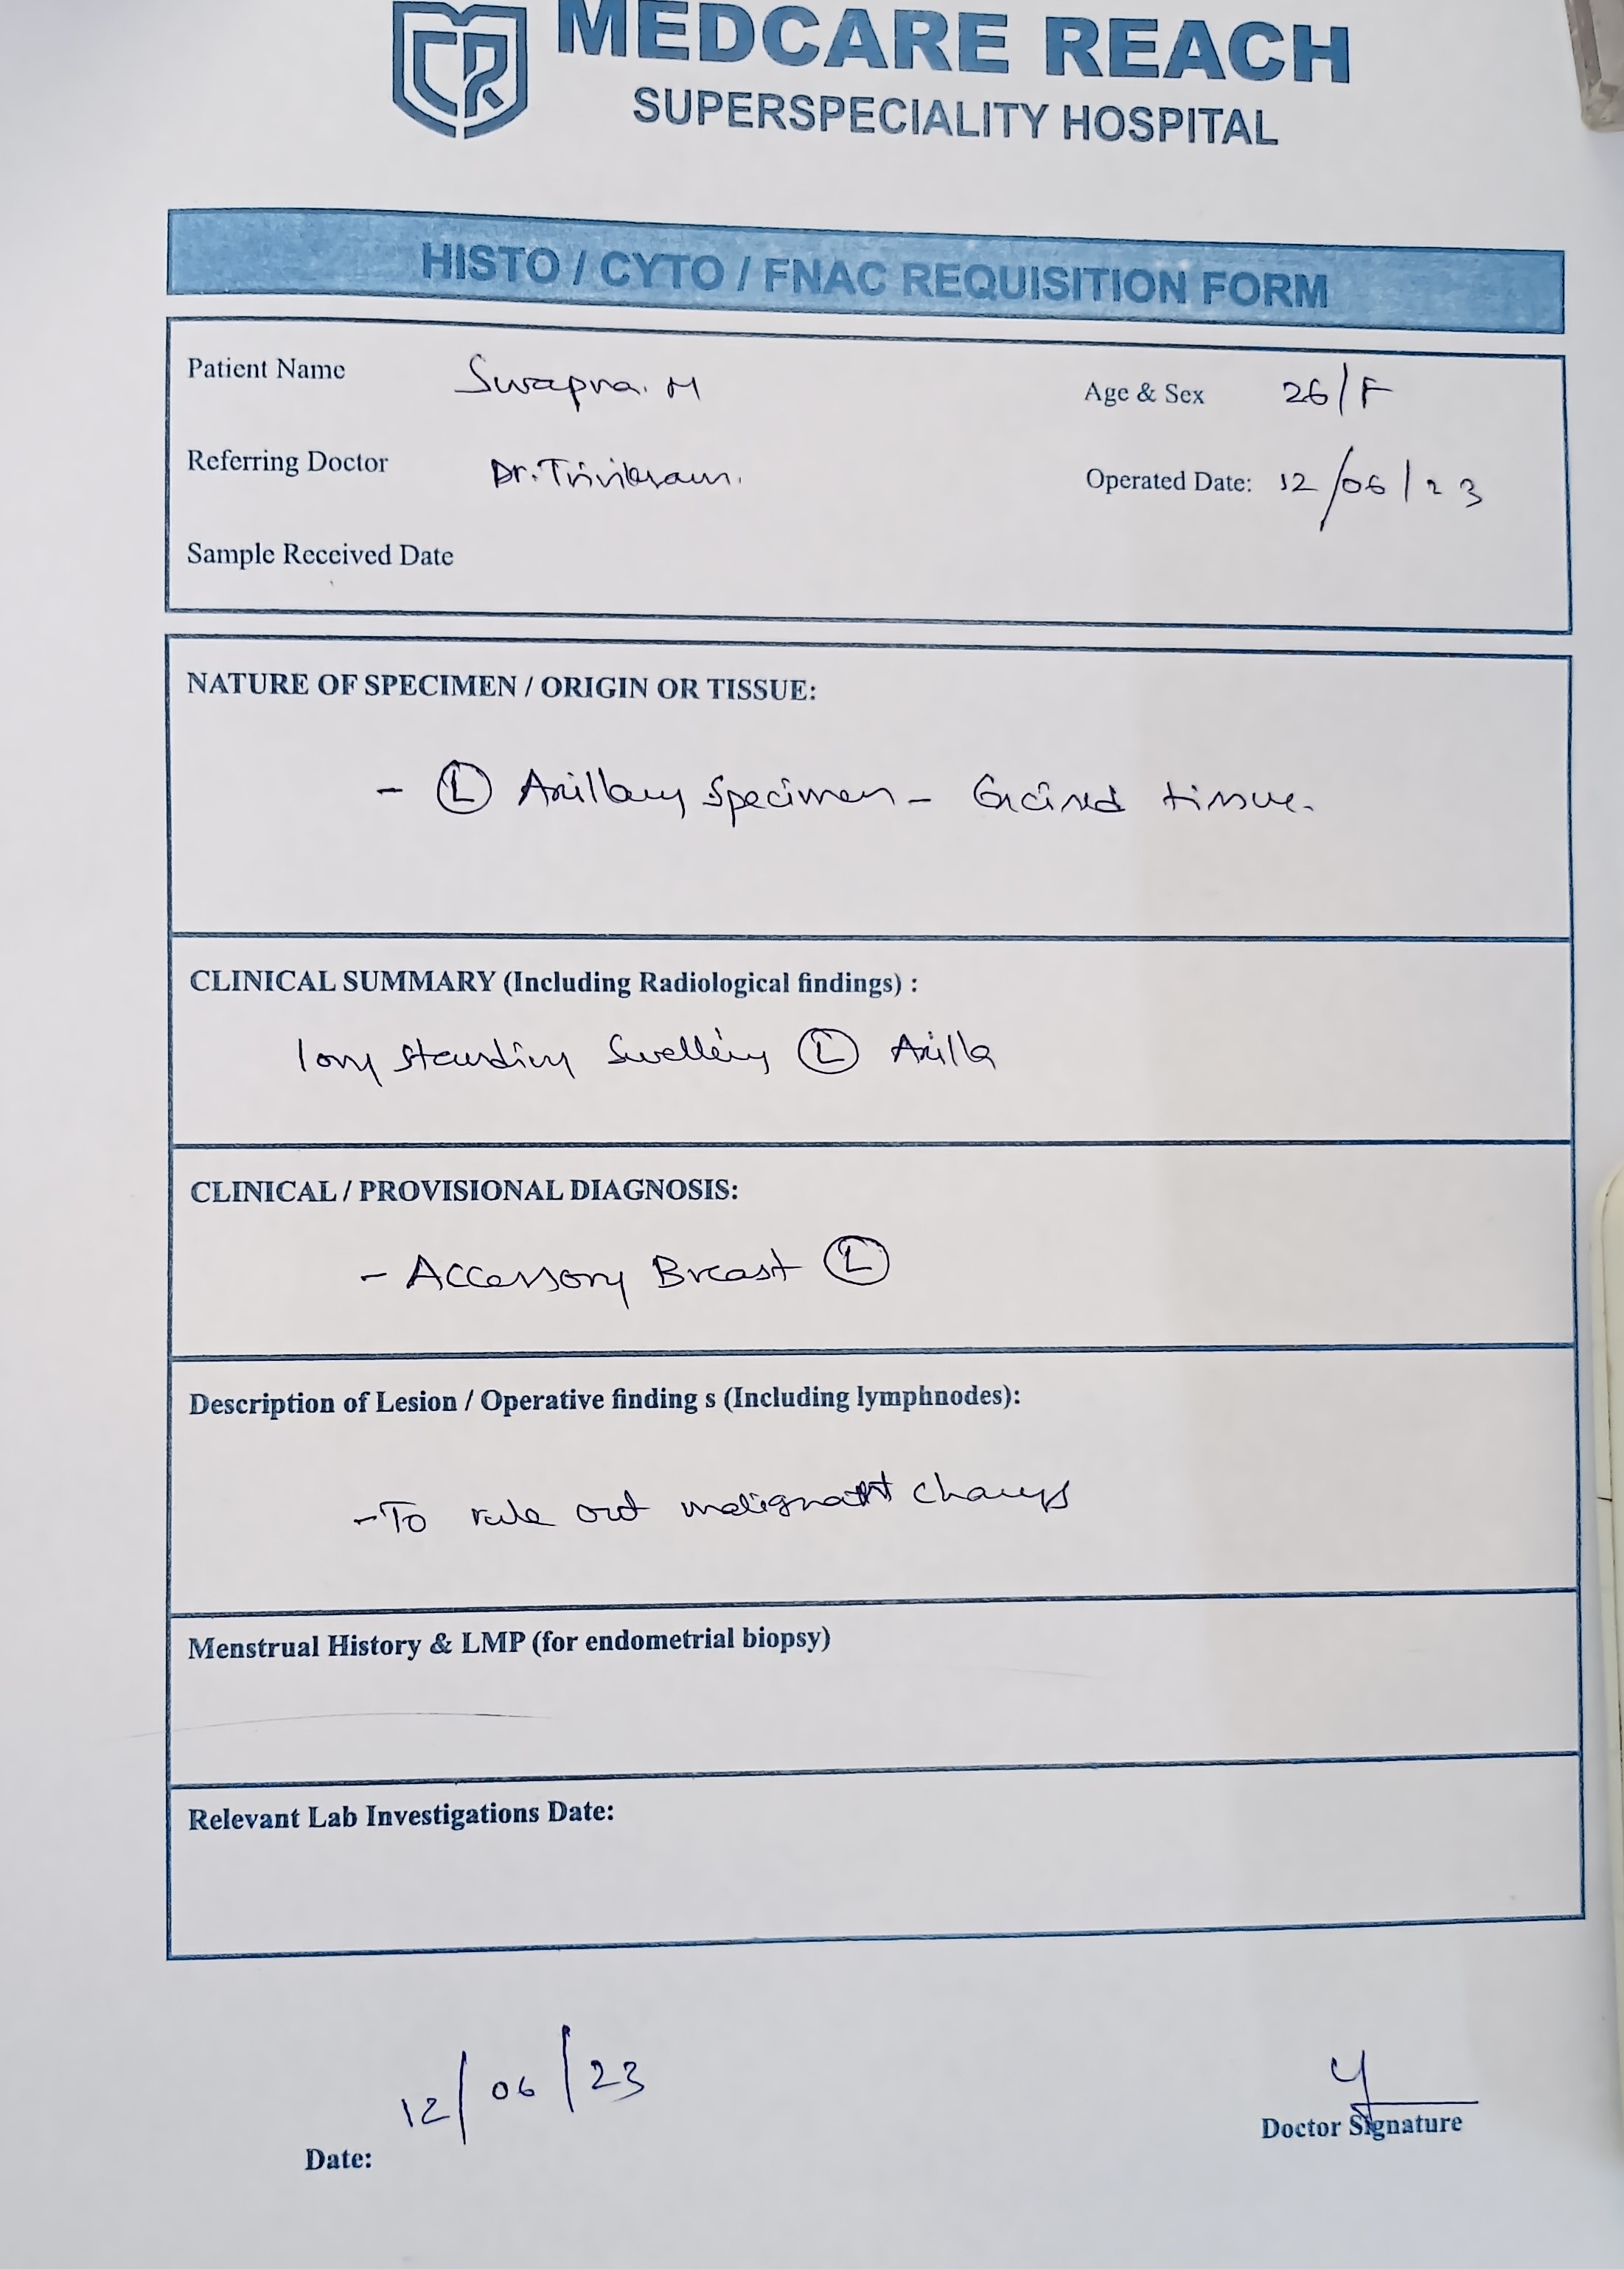 MEDCARE REACH
SUPERSPECIALITY HOSPITAL
HISTO / CYTO / FNAC REQUISITION FORM
Patient Name Swapna. M Age & Sex 26/F
Referring Doctor Dr. Trivikram. Operated Date: 12/06/23
Sample Received Date
NATURE OF SPECIMEN / ORIGIN OR TISSUE:
- Ⓛ Axillary Specimen - Excised tissue.
CLINICAL SUMMARY (Including Radiological findings) :
long standing Swelling Ⓛ Axilla
CLINICAL / PROVISIONAL DIAGNOSIS:
- Accessory Breast Ⓛ
Description of Lesion / Operative finding s (Including lymphnodes):
- To rule out malignant changes
Menstrual History & LMP (for endometrial biopsy)
Relevant Lab Investigations Date:
Date: 12/06/23
Doctor Signature